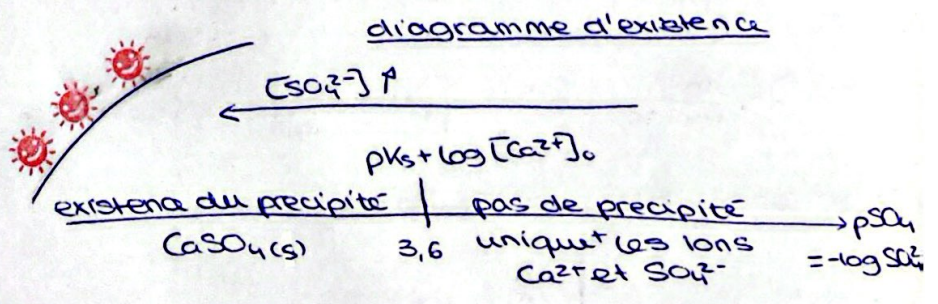 diagramme d'existence
[SO₄²⁻] ↑
pKs + log [Ca²⁺]₀
existena du precipité | pas de precipité → pSO₄
CaSO₄(s) 3,6 unique⁺ les ions = -log SO₄²⁻
Ca²⁺ et SO₄²⁻